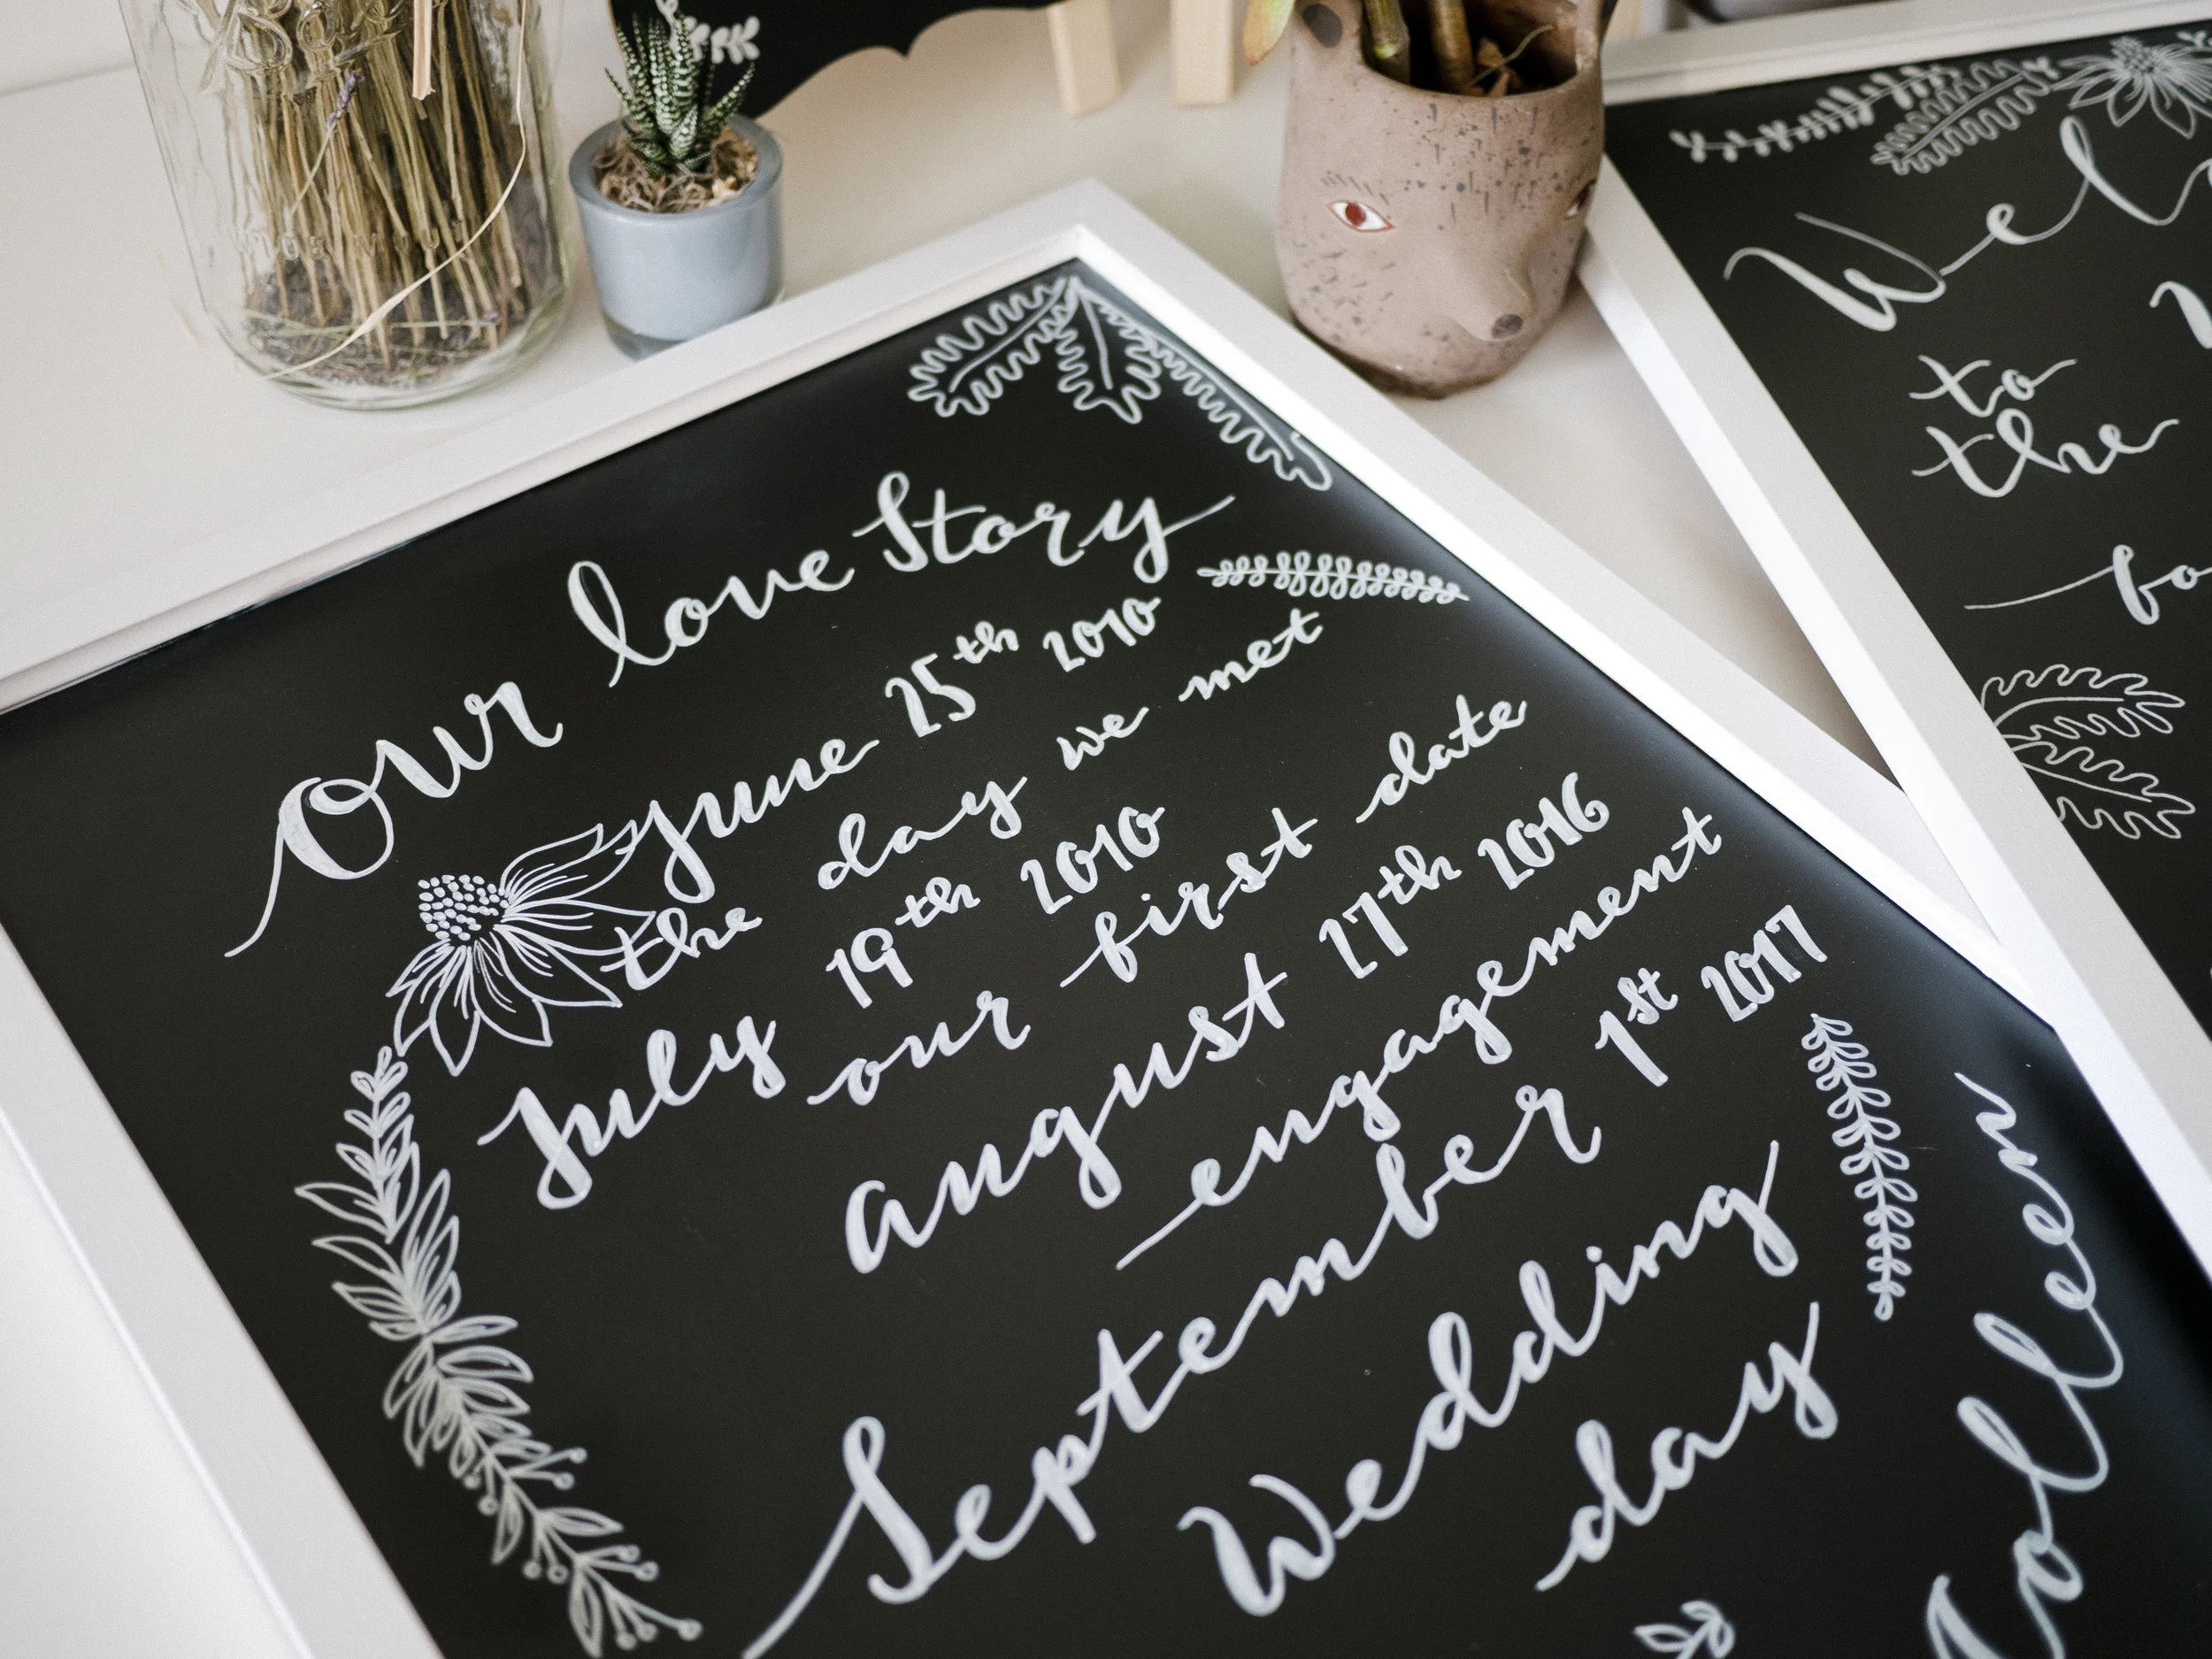 Our love Story
June 25th 2010
the day we met
July 19th 2010
our first date
august 27th 2016
engagement
September 1st 2017
Wedding
day
Colleen
to
the